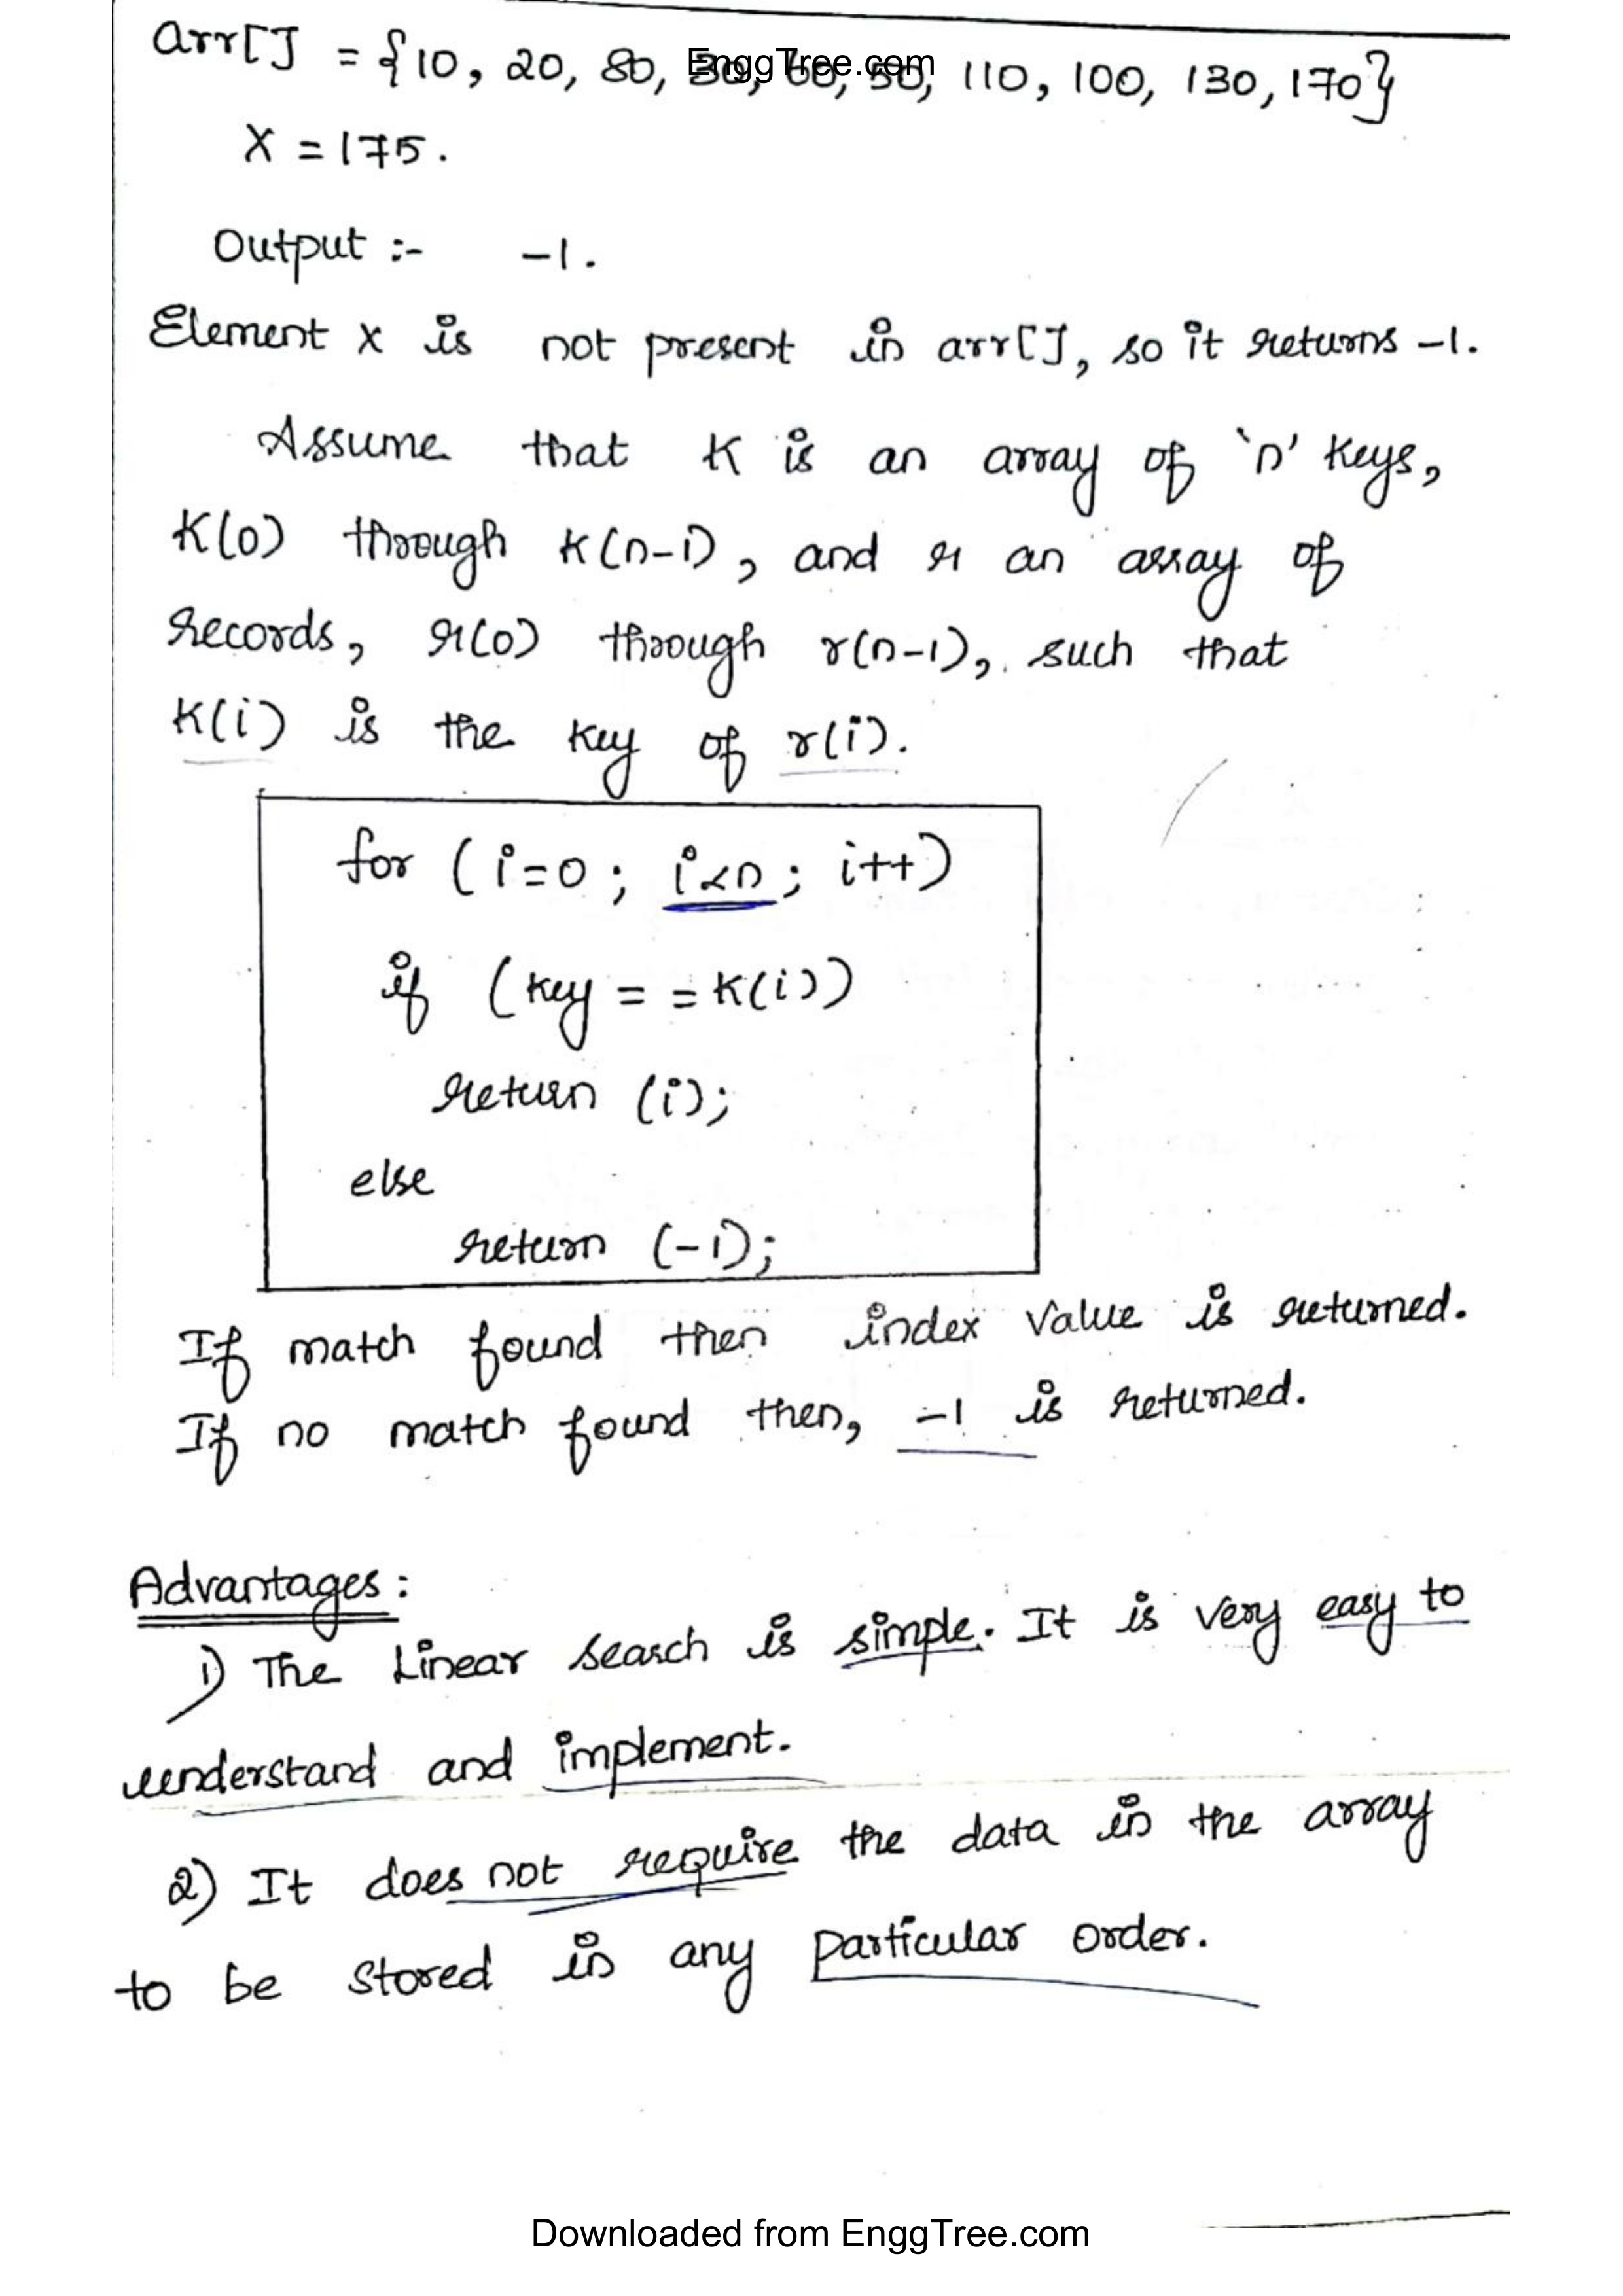 arr[] = {10, 20, 80, 30, 60, 50, 110, 100, 130, 170}
EnggTree.com
X = 175.
Output :- -1.
Element x is not present in arr[], so it returns -1.
Assume that K is an array of 'n' keys,
K(0) through K(n-1), and r an array of
records, r(0) through r(n-1), such that
K(i) is the key of r(i).
for (i=0 ; i<n ; i++)
if (key = = K(i))
return (i);
else
return (-1);
If match found then index value is returned.
If no match found then, -1 is returned.
Advantages :
1) The Linear search is simple. It is very easy to
understand and implement.
2) It does not require the data in the array
to be stored in any particular order.
Downloaded from EnggTree.com